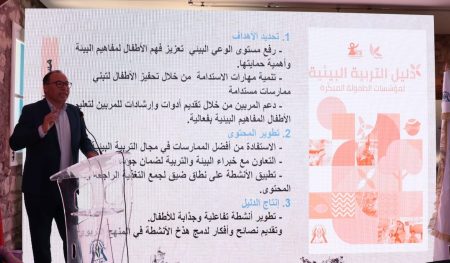 1. تحديد الأهداف
- رفع مستوى الوعي البيئي تعزيز فهم الأطفال لمفاهيم البيئة
وأهمية حمايتها.
- تنمية مهارات الاستدامة من خلال تحفيز الأطفال لتبني
ممارسات مستدامة
- دعم المربين من خلال تقديم أدوات وإرشادات للمربين لتعليم
الأطفال المفاهيم البيئية بفعالية.
2. تطوير المحتوى
- الاستفادة من أفضل الممارسات في مجال التربية البيئية
- التعاون مع خبراء البيئة والتربية لضمان
- تطبيق الأنشطة على نطاق ضيق لجمع التغذية الراجعة
المحتوى.
3. إنتاج الدليل
- تطوير أنشطة تفاعلية وجذابة للأطفال.
وتقديم نصائح وأفكار لدمج هذخ الأنشطة في المنهج
دليل التربية البيئية
لمؤسسات الطفولة المبكرة